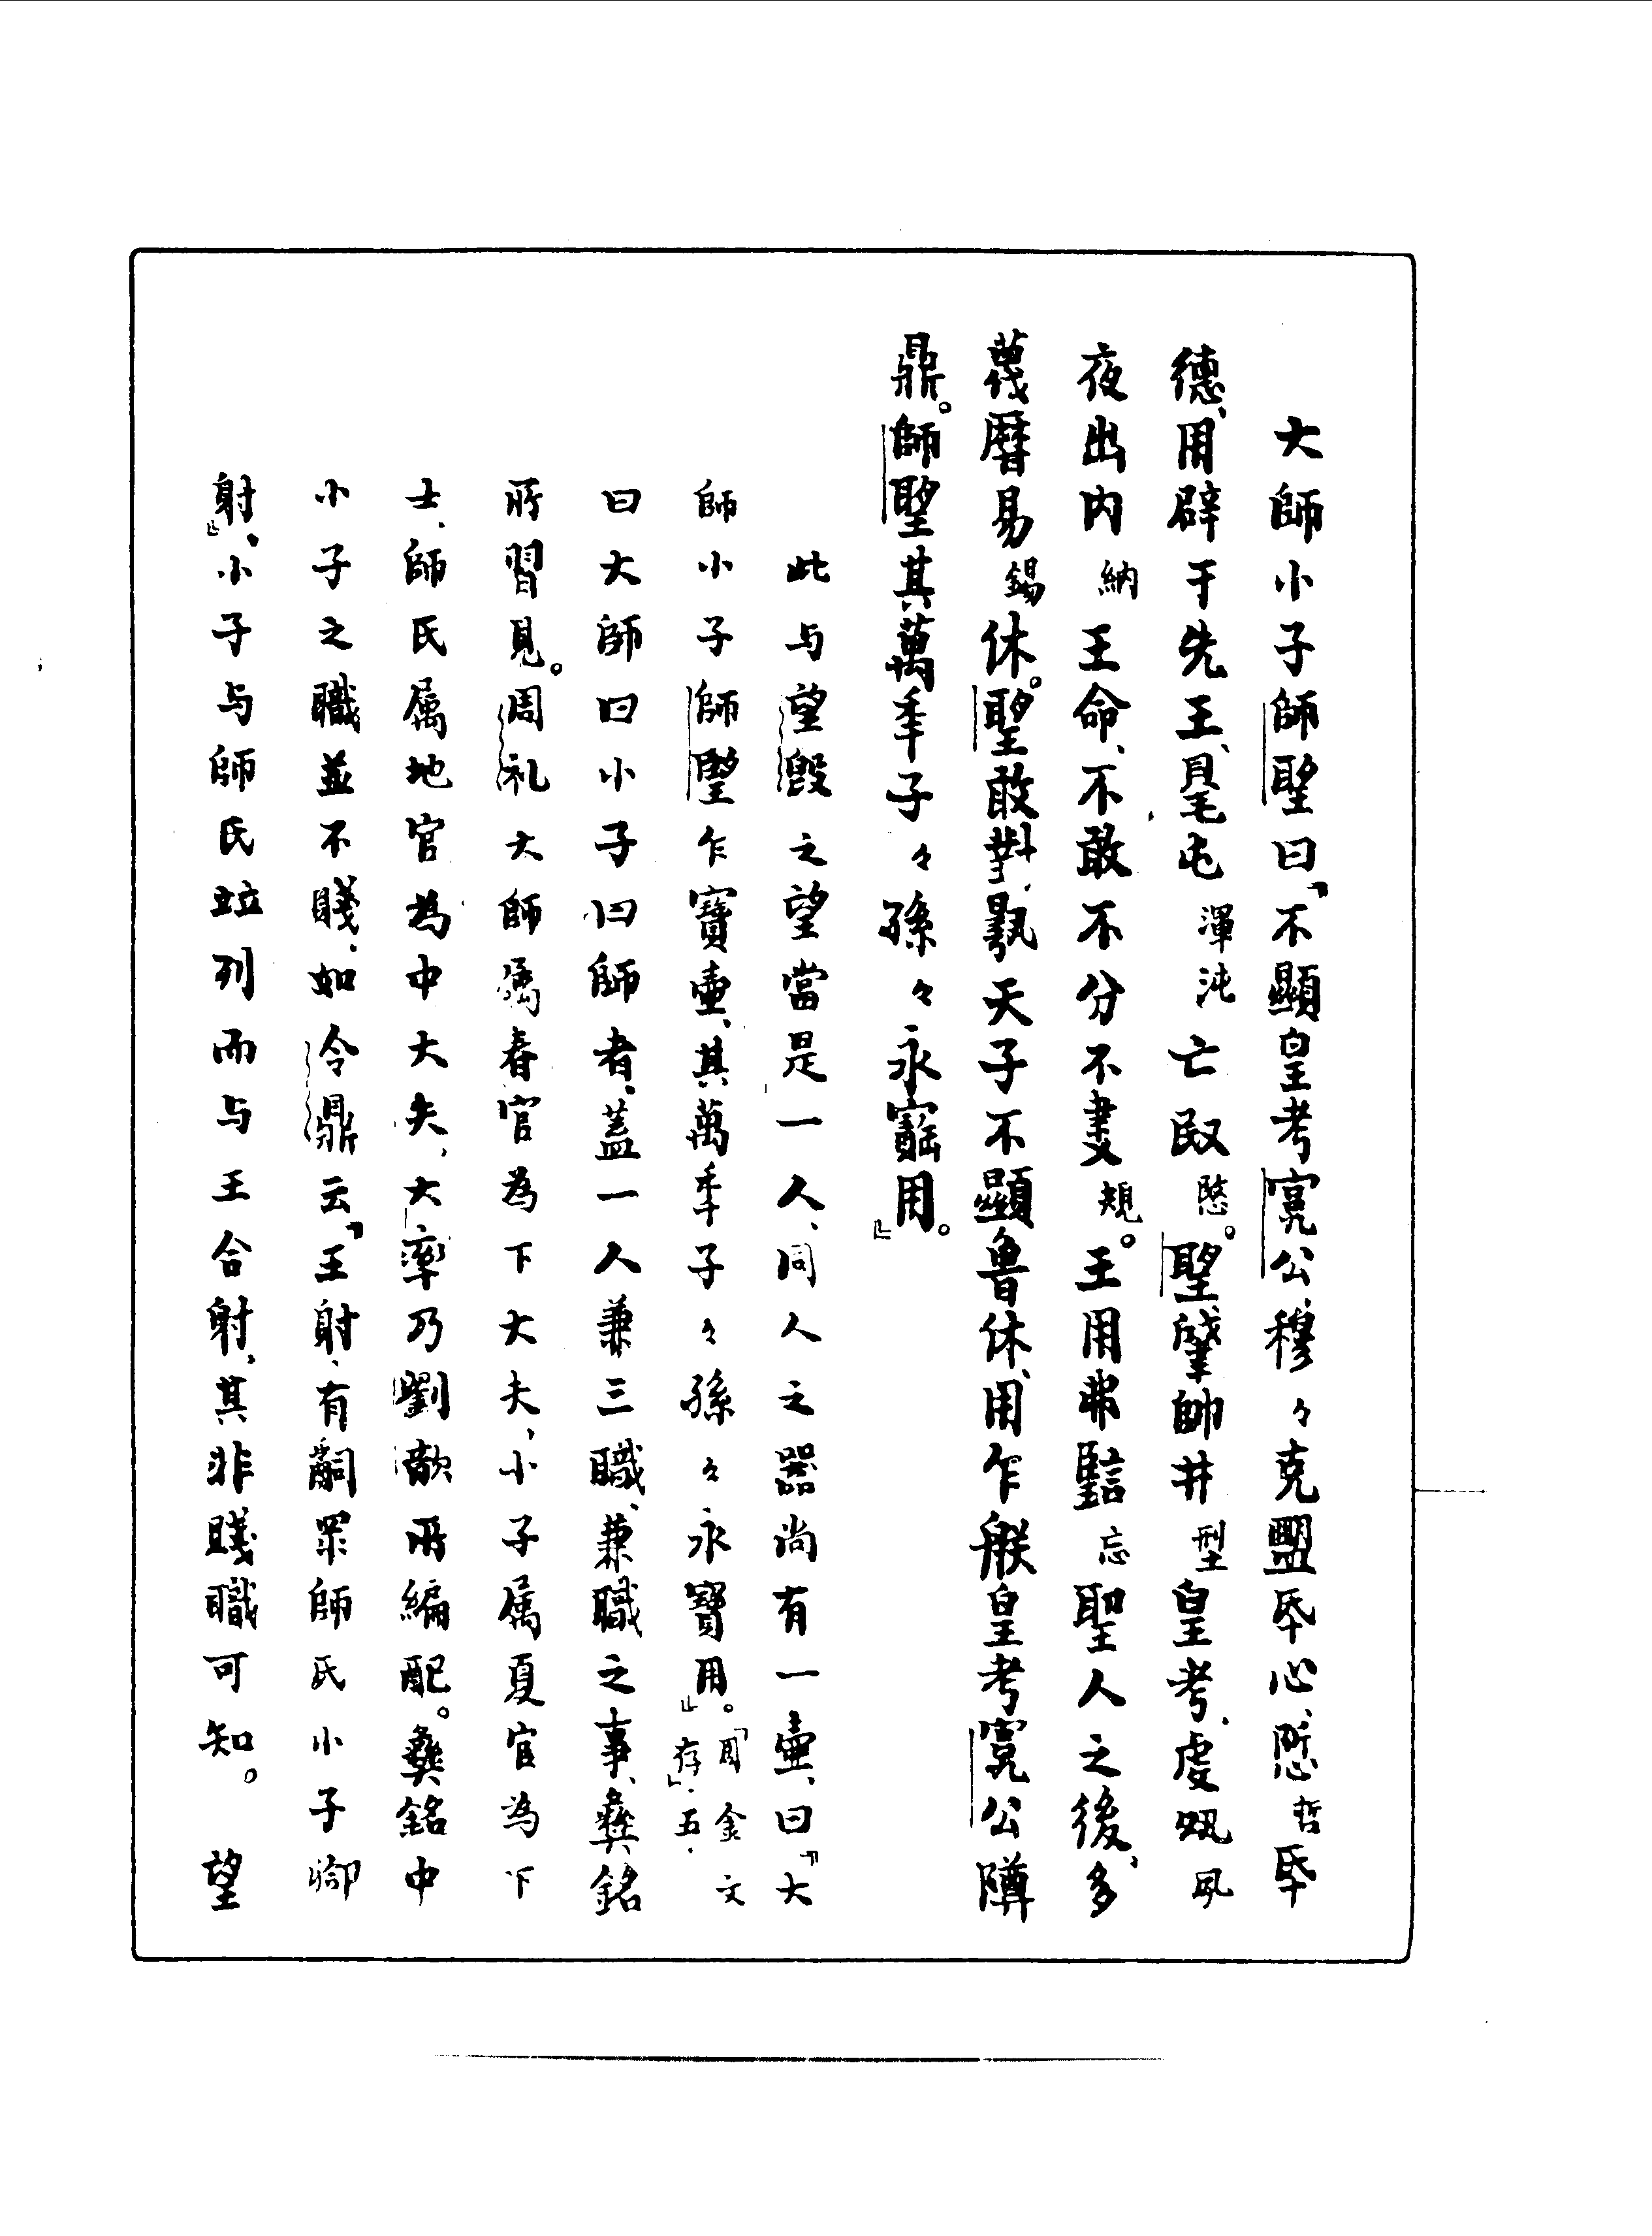 大師小子師朢曰、「不顯皇考寬公、穆々克盟氒心、悊哲氒
德、用辟于先王、㝵屯渾沌亡敃愍。朢肇帥井型皇考、虔夙夙
夜出内納王命、不敢不分不規。王用弗忘聖人之後、多
蔑曆易錫休。朢敢對、天子不顯魯休、用乍朕皇考寬公隣
鼎。師朢其萬年子々孫々永寶用。」
此与望𣪘之望當是一人、同人之器尚有一壺、曰「大
師小子師朢乍寶壺、其萬年子々孫々永寶用。」「周金文存」五.
曰大師曰小子曰師者、蓋一人兼三職、兼職之事、彝銘
所習見。周礼大師屬春官為下大夫、小子属夏官為下
士、師氏属地官為中大夫、大率乃劉歆所編配。彝銘中
小子之職並不賤、如令鼎云「王射、有嗣眔師氏小子㗬
射」、小子与師氏竝列而与王合射、其非賤職可知。 望